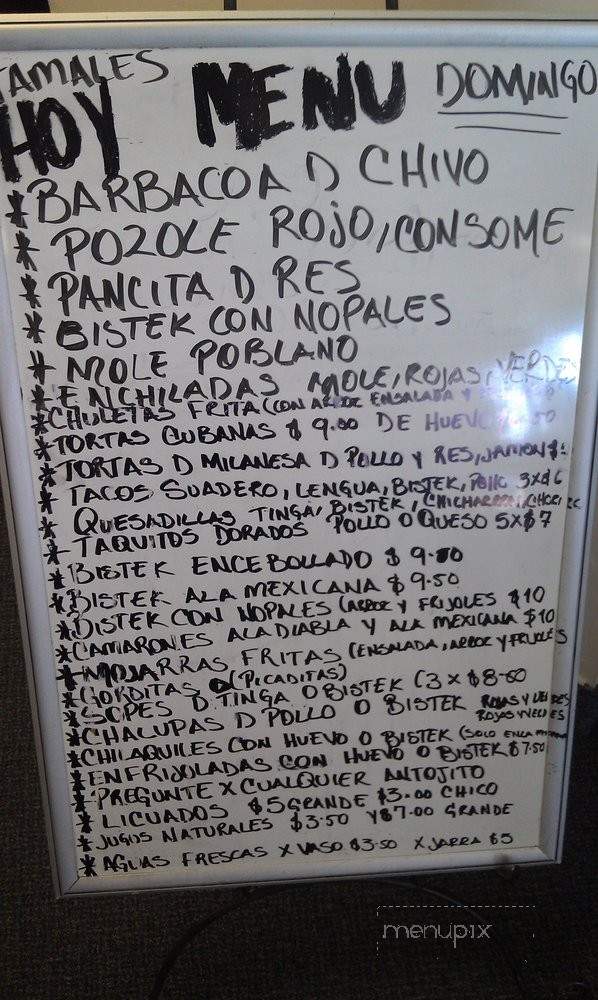 TAMALES
HOY MENU DOMINGO
* BARBACOA D CHIVO
* POZOLE ROJO, CONSOME
* PANCITA D RES
* BISTEK CON NOPALES
* MOLE POBLANO
* ENCHILADAS MOLE, ROJAS, VERDES
* CHULETAS FRITA (CON ARROZ ENSALADA Y
* TORTAS CUBANAS $ 9.00 DE HUEVO
* TORTAS D MILANESA D POLLO Y RES, JAMON $
* TACOS SUADERO, LENGUA, BISTEK, POLLO 3X$6
* QUESADILLAS TINGA, BISTEK, CHICHARRON, CHORIZO
* TAQUITOS DORADOS POLLO O QUESO 5X$7
* BISTEK ENCEBOLLADO $ 9.50
* BISTEK ALA MEXICANA $ 9.50
* BISTEK CON NOPALES (ARROZ Y FRIJOLES $10
* CAMARONES ALA DIABLA Y ALA MEXICANA $10
* MOJARRAS FRITAS (ENSALADA, ARROZ Y FRIJOLES
* GORDITAS (PICADITAS)
* SOPES D TINGA O BISTEK (3 X $8.50
* CHALUPAS D POLLO O BISTEK ROJAS Y VERDES
* CHILAQUILES CON HUEVO O BISTEK ROJAS Y VERDES (SOLO EN LA
* ENFRIJOLADAS CON HUEVO O BISTEK $7.50
* PREGUNTE X CUALQUIER ANTOJITO
* LICUADOS $5 GRANDE $3.00 CHICO
* JUGOS NATURALES $3.50 Y $7.00 GRANDE
* AGUAS FRESCAS X VASO $3.50 X JARRA $5
menupix